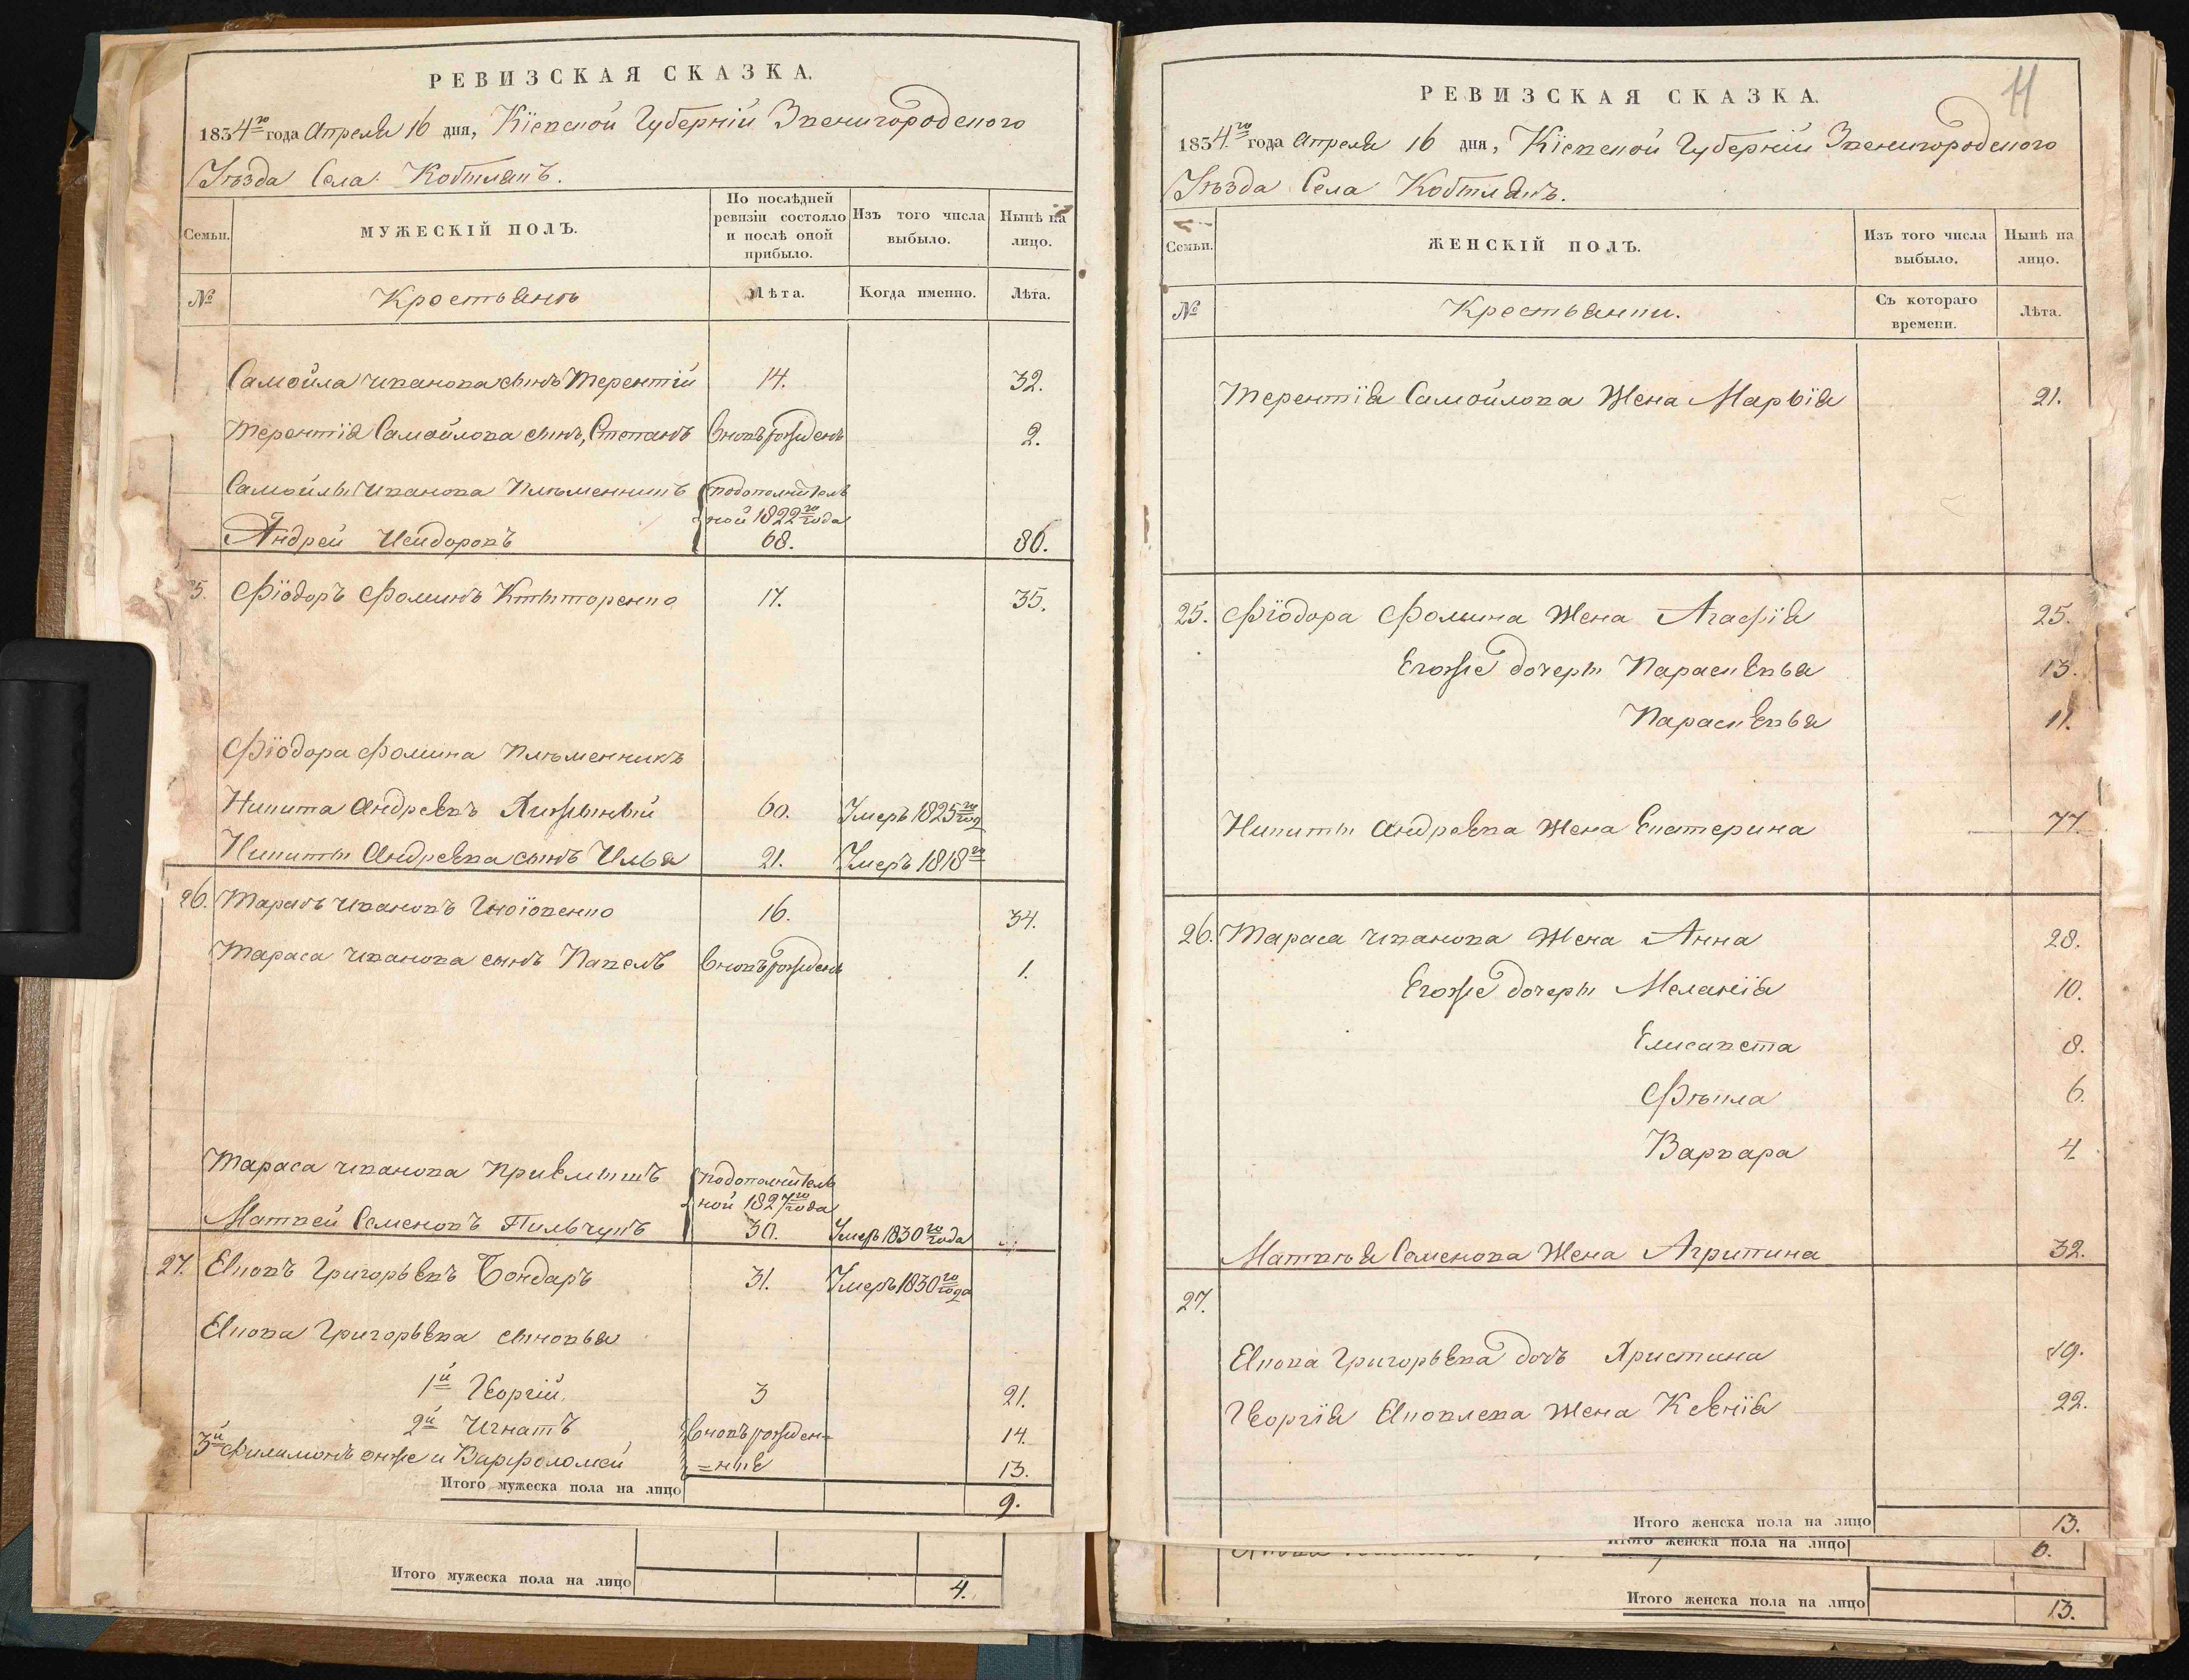 РЕВИЗСКАЯ СКАЗКА.
1834го года Апреля 16 дня, Кіевской Губерніи Звенигородского
Уѣзда Села
Семьи.
МУЖЕСКІЙ ПОЛЪ.
По послѣдней ревизіи состояло и послѣ оной прибыло.
Изъ того числа выбыло.
Нынѣ на лицо.
№
Крестьянѣ
Лѣта.
Когда именно.
Лѣта.
Самойла Иванова сынъ Терентій 14. 32.
Терентія Самойлова сынъ, Степанъ Вновь рожденъ 2.
Самойлы Иванова Племенникъ подополнитель
ной 1822го года
Андрей Исидоровъ 68. 86.
25. Фіодоръ Фоминъ Ктыторенко 17. 35.
Фіодора Фомина Племенникъ
Никита Андреевъ 60. Умеръ 1825го год
Никиты Андреева сынъ Илья 21. Умеръ 1818го
26. Тарасъ Ивановъ 16. 34.
Тараса Иванова сынъ Павелъ Вновь рожденъ 1.
Тараса Иванова Приемышъ подополнитель
ной 1827го года
Матвей Семеновъ Пильчукъ 30. Умеръ 1830го года
27. Еновъ Григорьевъ Бондаръ 31. Умеръ 1830го года
Енова Григорьева сыновья
1й Георгій 3 21.
2й Игнатъ Вновь рожден= 14.
3й Филимонъ онже и Варфоломей =ные 13.
Итого мужеска пола на лицо 9.
Итого мужеска пола на лицо 4.
11
РЕВИЗСКАЯ СКАЗКА.
1834го года Апреля 16 дня, Кіевской Губерніи Звенигородского
Уѣзда Села
Семьи.
ЖЕНСКІЙ ПОЛЪ.
Изъ того числа выбыло.
Нынѣ на лицо.
№
Крестьянки.
Съ котораго времени.
Лѣта.
Терентія Самойлова Жена Марвія 21.
25. Фіодора Фомина Жена Агафія 25.
Егоже дочеры Параскевья 13.
Параскевья 11.
Никиты Андреева Жена Екатерина 77.
26. Тараса Иванова Жена Анна 28.
Егоже дочеры Меланія 10.
Елисавета 8.
Фѣкла 6.
Варвара 4.
Матвѣя Семенова Жена Агрипина 32.
27.
Енова Григорьева дочь Христина 19.
Георгія Жена Ксенія 22.
Итого женска пола на лицо 13.
Итого женска пола на лицо 6.
Итого женска пола на лицо 13.